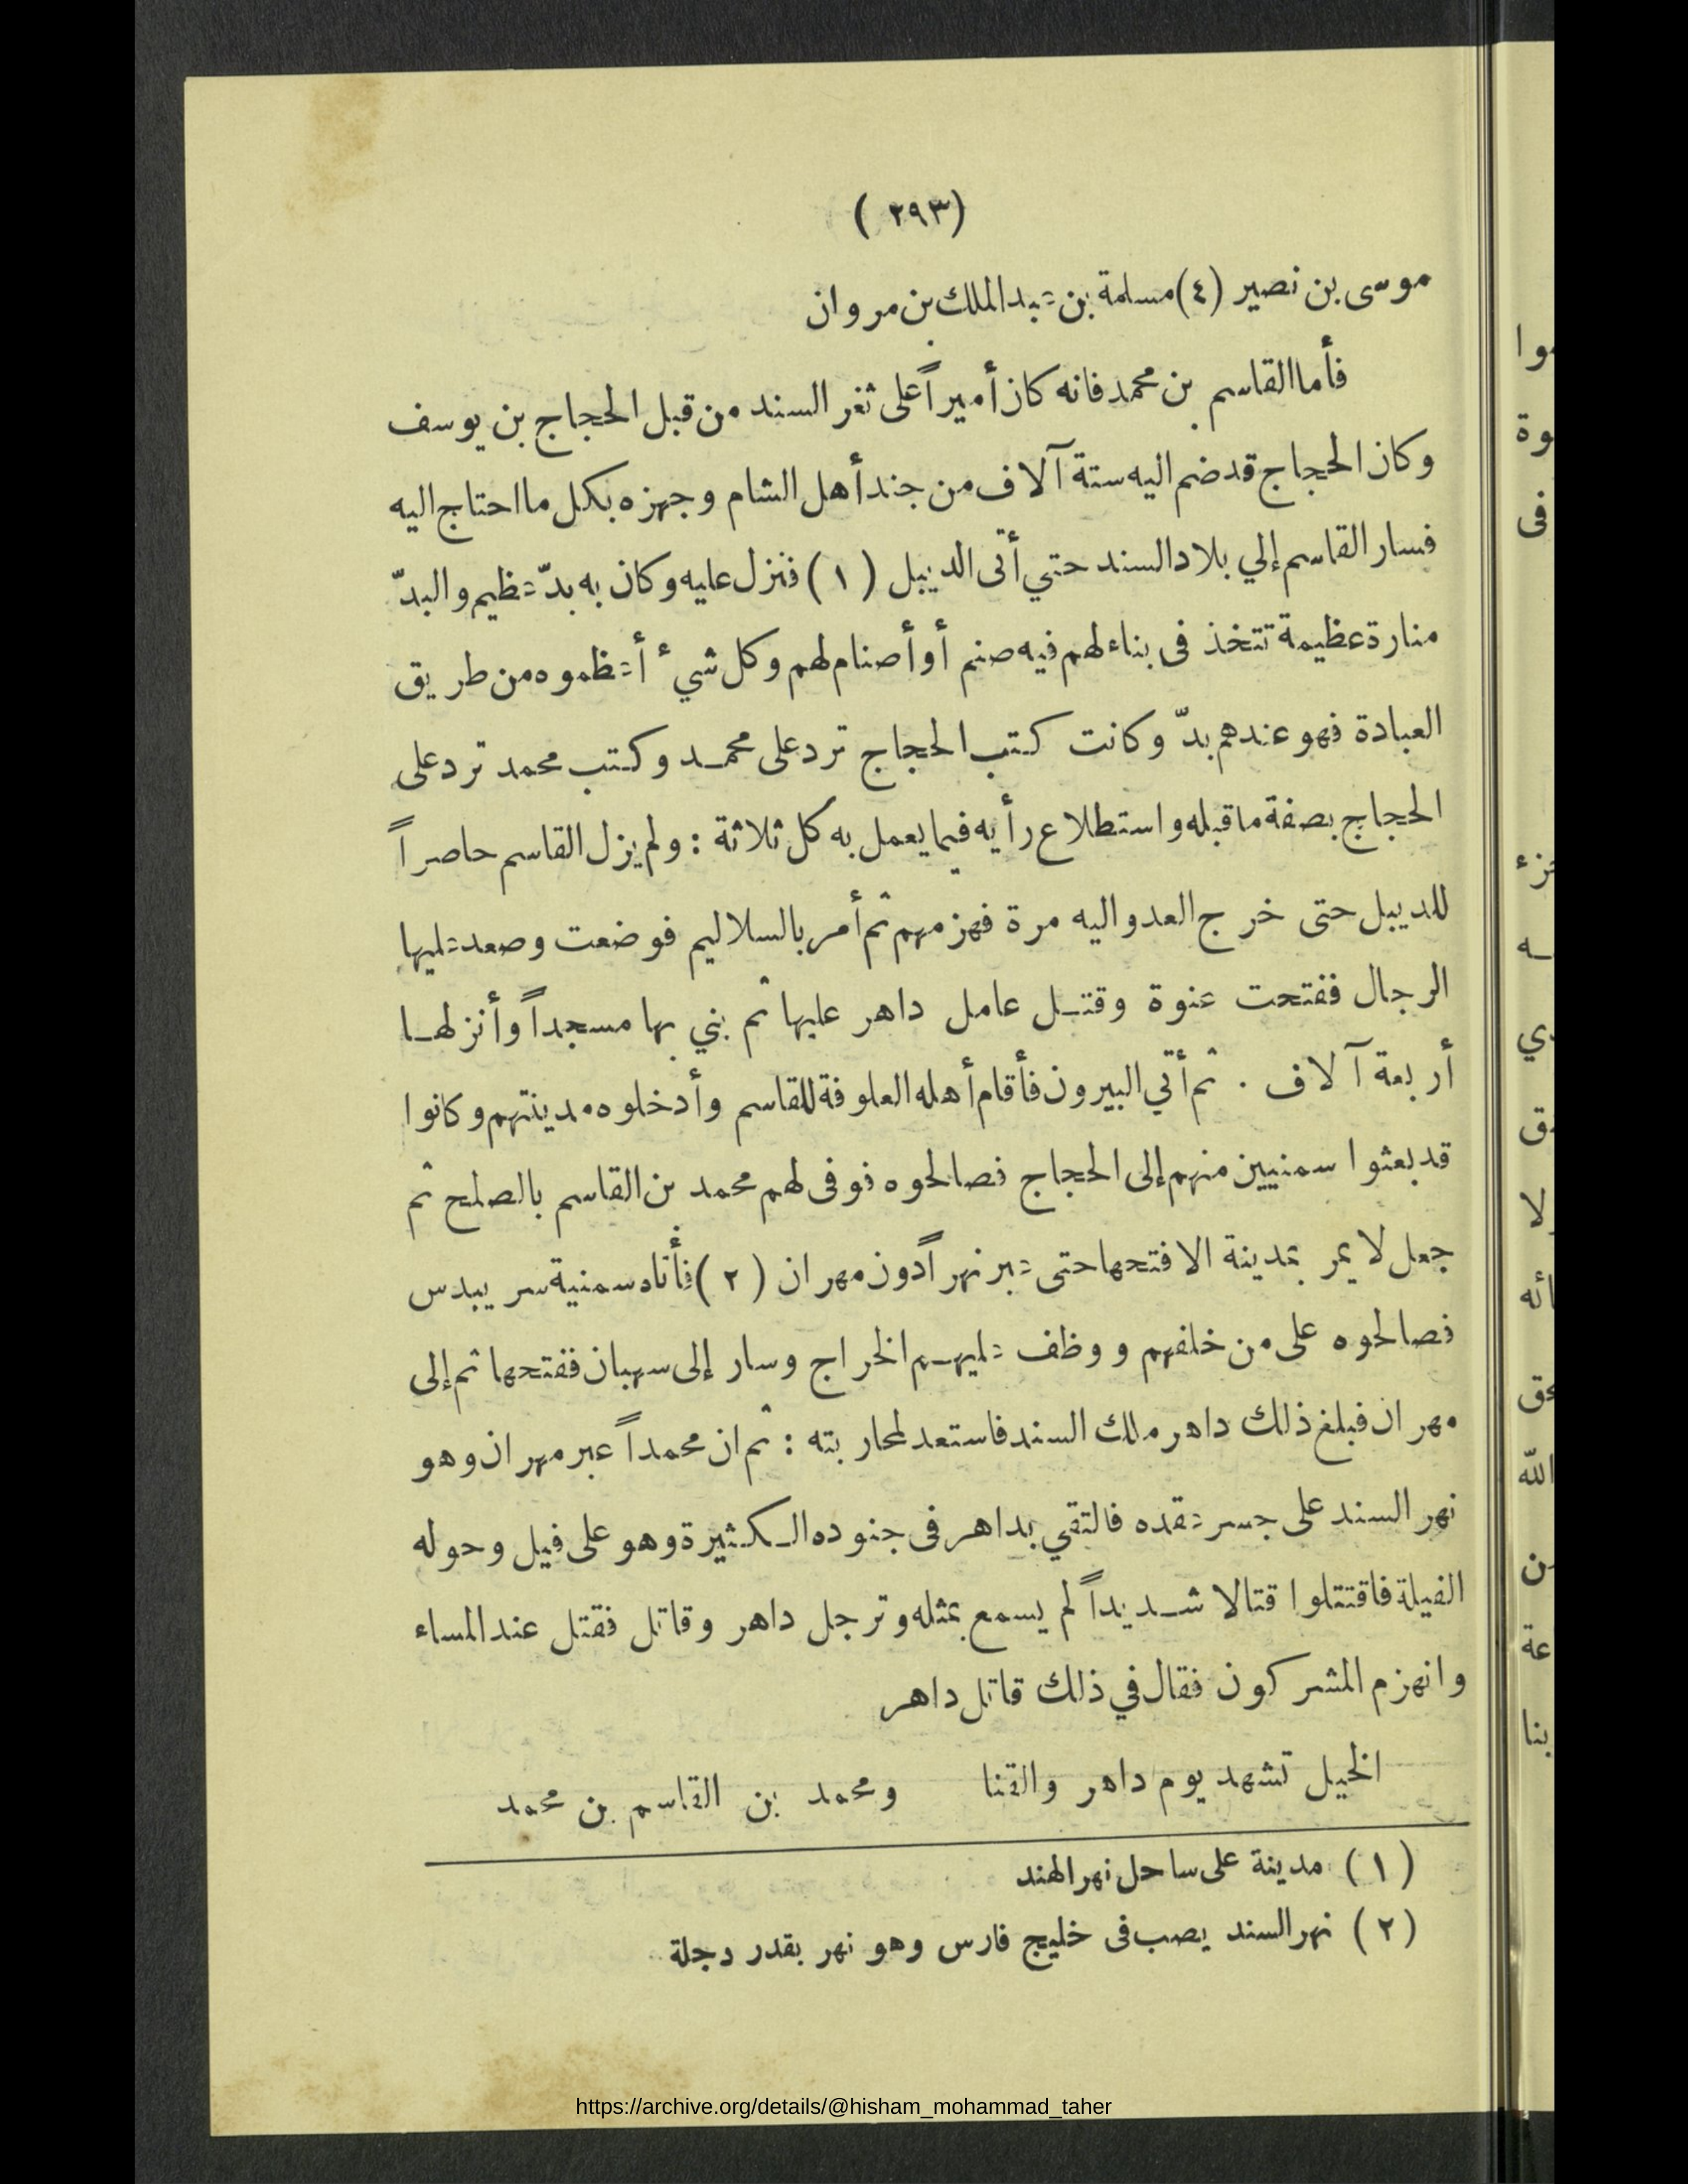 (٢٩٣)
موسى بن نصير (٤) مسلمة بن عبد الملك بن مروان
فأما القاسم بن محمد فانه كان أميراً على ثغر السند من قبل الحجاج بن يوسف
وكان الحجاج قد ضم اليه ستة آلاف من جند أهل الشام وجهزه بكل ما احتاج اليه
فسار القاسم إلي بلاد السند حتي أتى الديبل (١) فنزل عليه وكان به بدّ عظيم والبدّ
منارة عظيمة تتخذ فى بناء لهم فيه صنم أو أصنام لهم وكل شيء أعظموه من طريق
العبادة فهو عندهم بدّ وكانت كتب الحجاج ترد على محمد وكتب محمد ترد على
الحجاج بصفة ما قبله واستطلاع رأيه فيما يعمل به كل ثلاثة : ولم يزل القاسم حاصراً
للديبل حتى خرج العدو اليه مرة فهزمهم ثم أمر بالسلاليم فوضعت وصعد عليها
الرجال ففتحت عنوة وقتل عامل داهر عليها ثم بني بها مسجداً وأنزلها
أربعة آلاف . ثم أتي البيرون فأقام أهله العلوفة للقاسم وأدخلوه مدينتهم وكانوا
قد بعثوا سمنيين منهم إلى الحجاج فصالحوه فوفى لهم محمد بن القاسم بالصلح ثم
جعل لا يمر بمدينة الا فتحها حتى عبر نهراً دون مهران (٢) فأتاه سمنية سريبدس
فصالحوه على من خلفهم ووظف عليهم الخراج وسار إلى سهبان ففتحها ثم إلى
مهران فبلغ ذلك داهر ملك السند فاستعد لمحاربته : ثم ان محمداً عبر مهران وهو
نهر السند على جسر عقده فالتقي بداهر فى جنوده الكثيرة وهو على فيل وحوله
الفيلة فاقتتلوا قتالا شديداً لم يسمع بمثله وترجل داهر وقاتل فقتل عند المساء
وانهزم المشركون فقال في ذلك قاتل داهر
الخيل تشهد يوم داهر والقنا ومحمد بن القاسم بن محمد
(١) مدينة على ساحل نهر الهند
(٢) نهر السند يصب فى خليج فارس وهو نهر بقدر دجلة
https://archive.org/details/@hisham_mohammad_taher